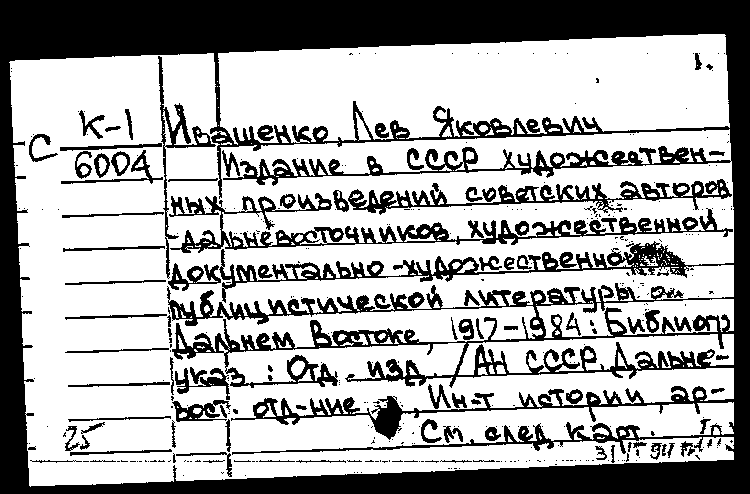 1.
С К-1 Иващенко, Лев Яковлевич
6004 Издание в СССР художествен-
ных произведений советских авторов
-дальневосточников, художественной,
документально-художественной
публицистической литературы о
Дальнем Востоке, 1917-1984: Библиогр
указ. : Отд. изд. / АН СССР. Дальне-
вост. отд-ние , Ин-т истории, ар-
25 См. след. карт.